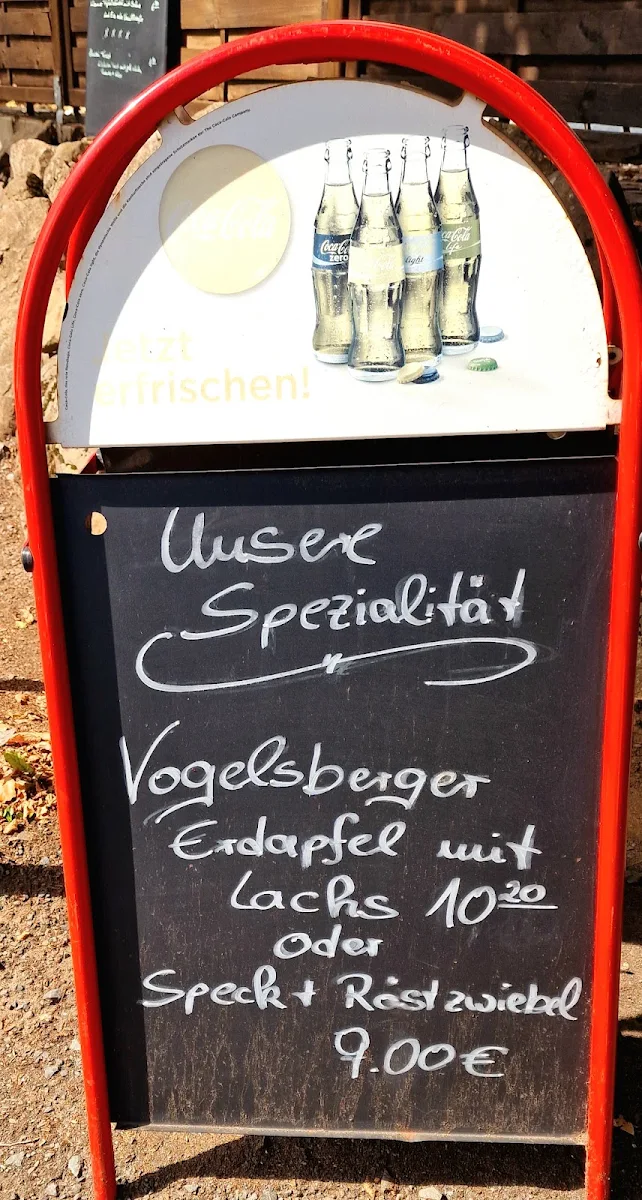 Coca-Cola
Coca-Cola
zero
light
Coca-Cola
Life
Jetzt
erfrischen!
Unsere
Spezialität
Vogelsberger
Erdapfel mit
Lachs 10 20
oder
Speck + Röstzwiebel
9.00 €